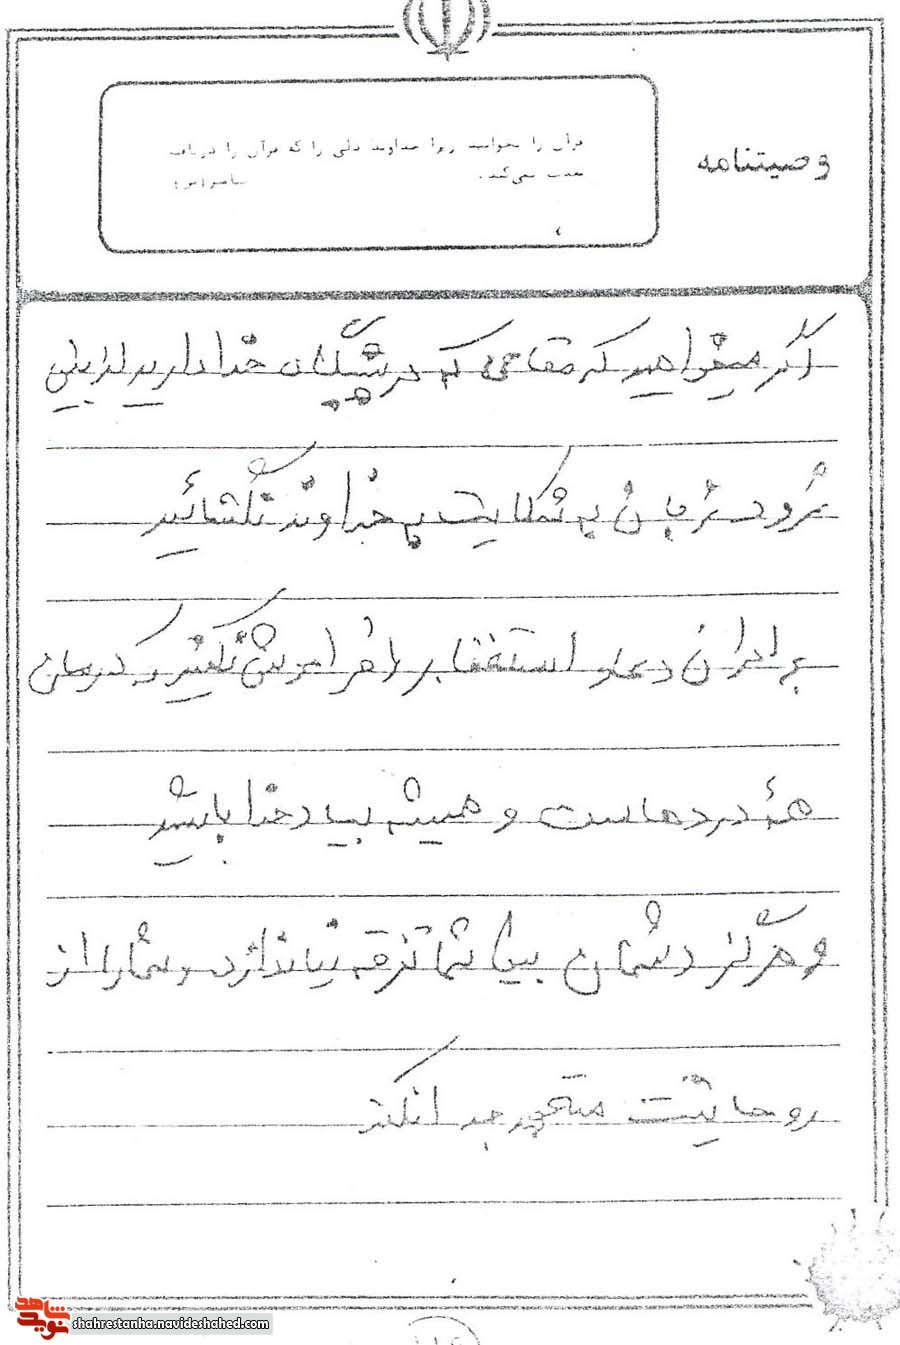 وصیتنامه
قرآن را بخوانید زیرا خداوند دلی را که قرآن را دریافت
نمی‌کند.
اگر میخواهید که مقامی که در پیشگاه خدا دارید از بین
نرود زبان به شکایت به خداوند نگشائید
برادران دعا و استغفار را فراموش نکنید که درمان
همهٔ دردهاست و همیشه بیاد خدا باشید
و هرگز دشمنان بین شما تفرقه نیاندازد و شما را از
روحانیت متعهد جدا نکند
نوید شاهد
shahrestanha.navideshahed.com